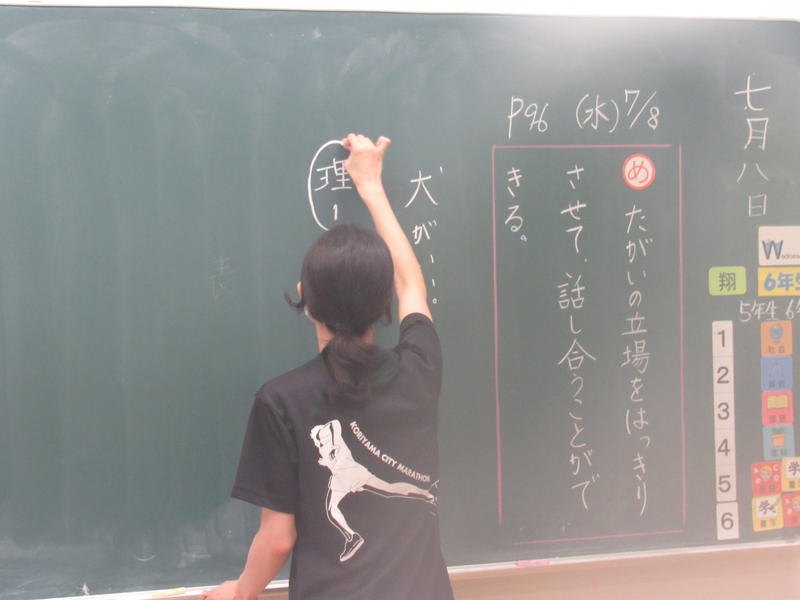 七月八日
P96 (水) 7/8
め たがいの立場をはっきり
させて、話し合うことがで
きる。
犬が…。
理
表
KORIYAMA CITY MARATHON
Wednes
翔
6年生
5年生 6年
1
社会
2
3
4
理科
5
6